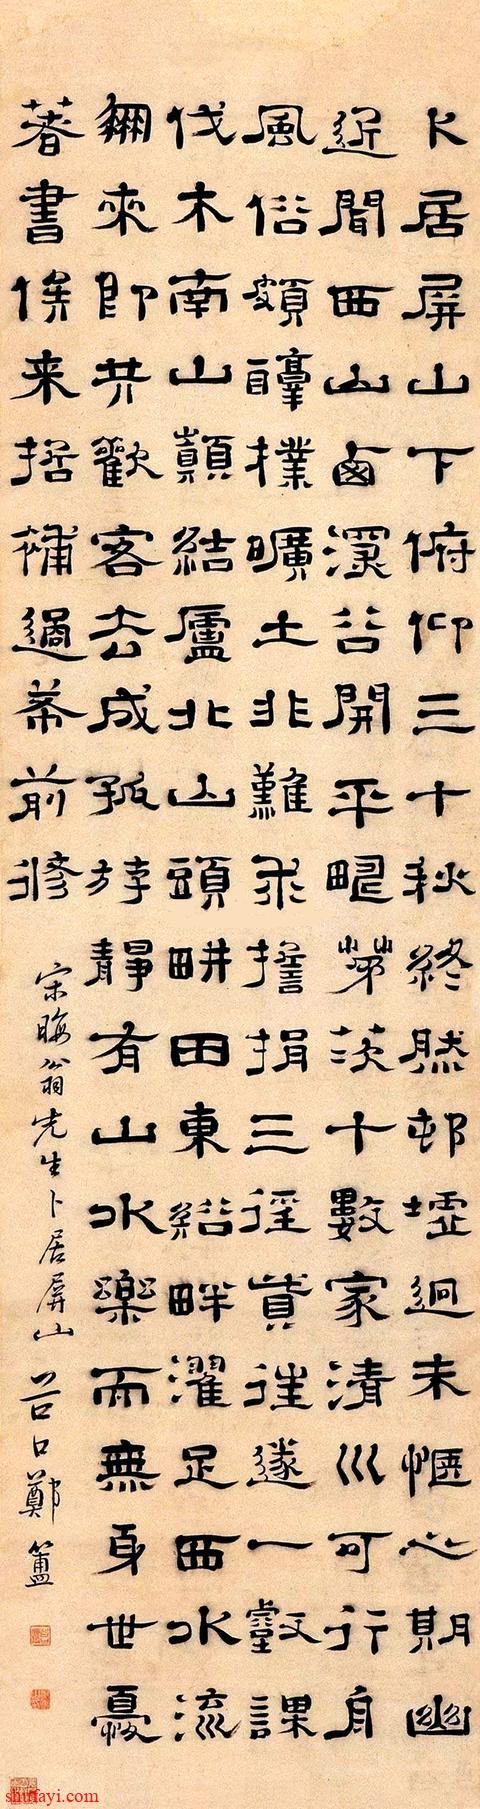 卜居屏山下俯仰三十秋終然邨墟迥未愜心期幽
近聞西山卤深谷開平疇茅茨十數家清川可行舟
風俗頗醇樸曠土非難求擔捐三徑貲往遂一壑謀
伐木南山顛結廬北山頭畊田東谿畔濯足西水流
朋來即共歡客去成孤游靜有山水樂而無身世憂
著書俟来哲補過希前修
宋晦翁先生卜居屏山 谷口鄭簠
shufayi.com